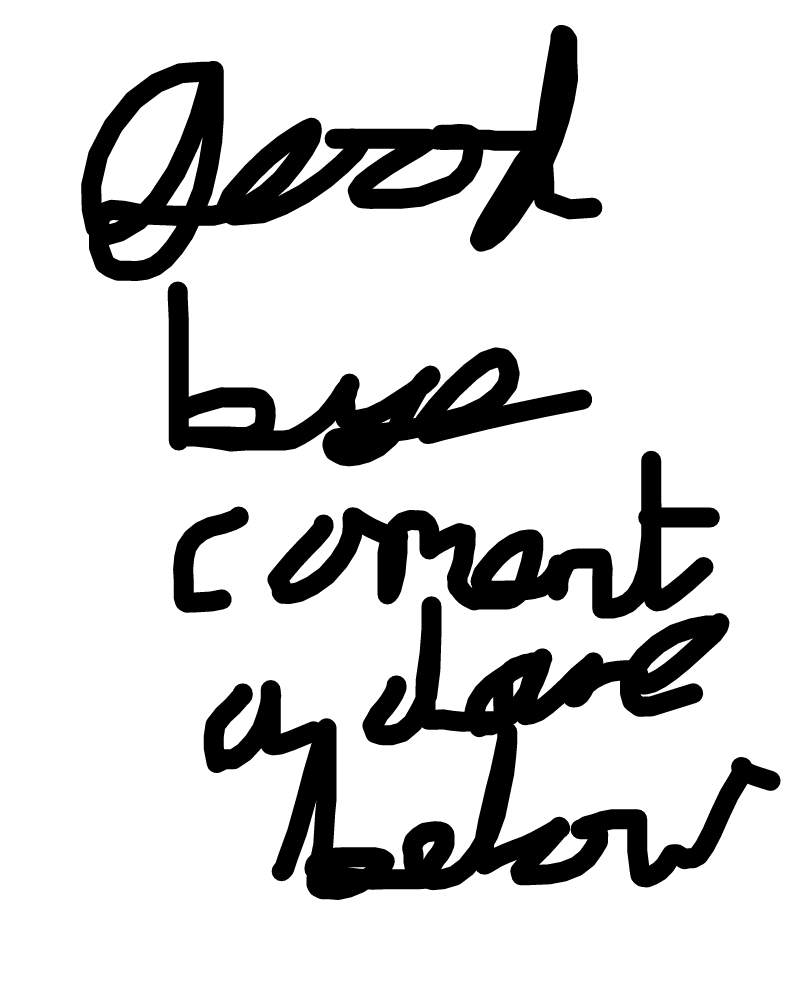 Good
bye
coment
a dare
below